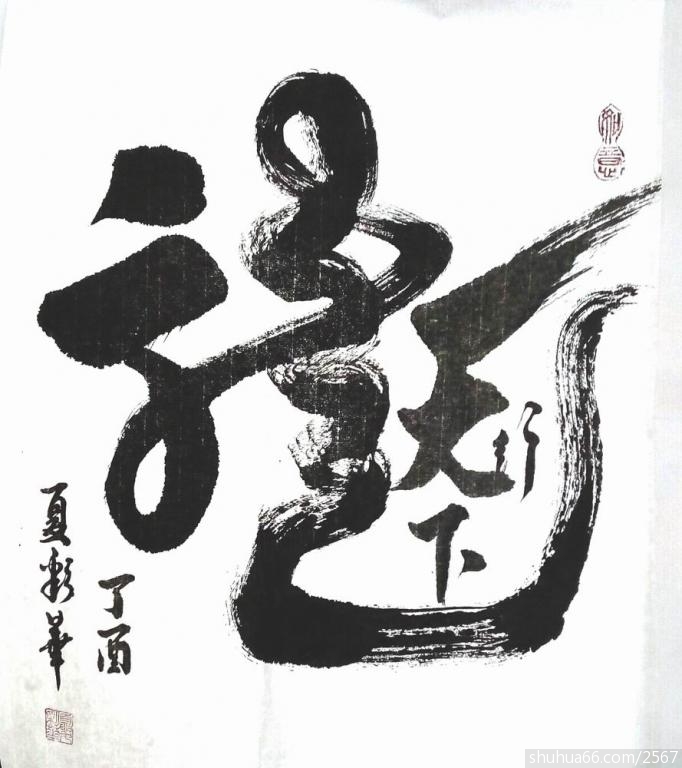 龍
行
天下
丁酉
夏彩華
如意
shuhua66.com/2567